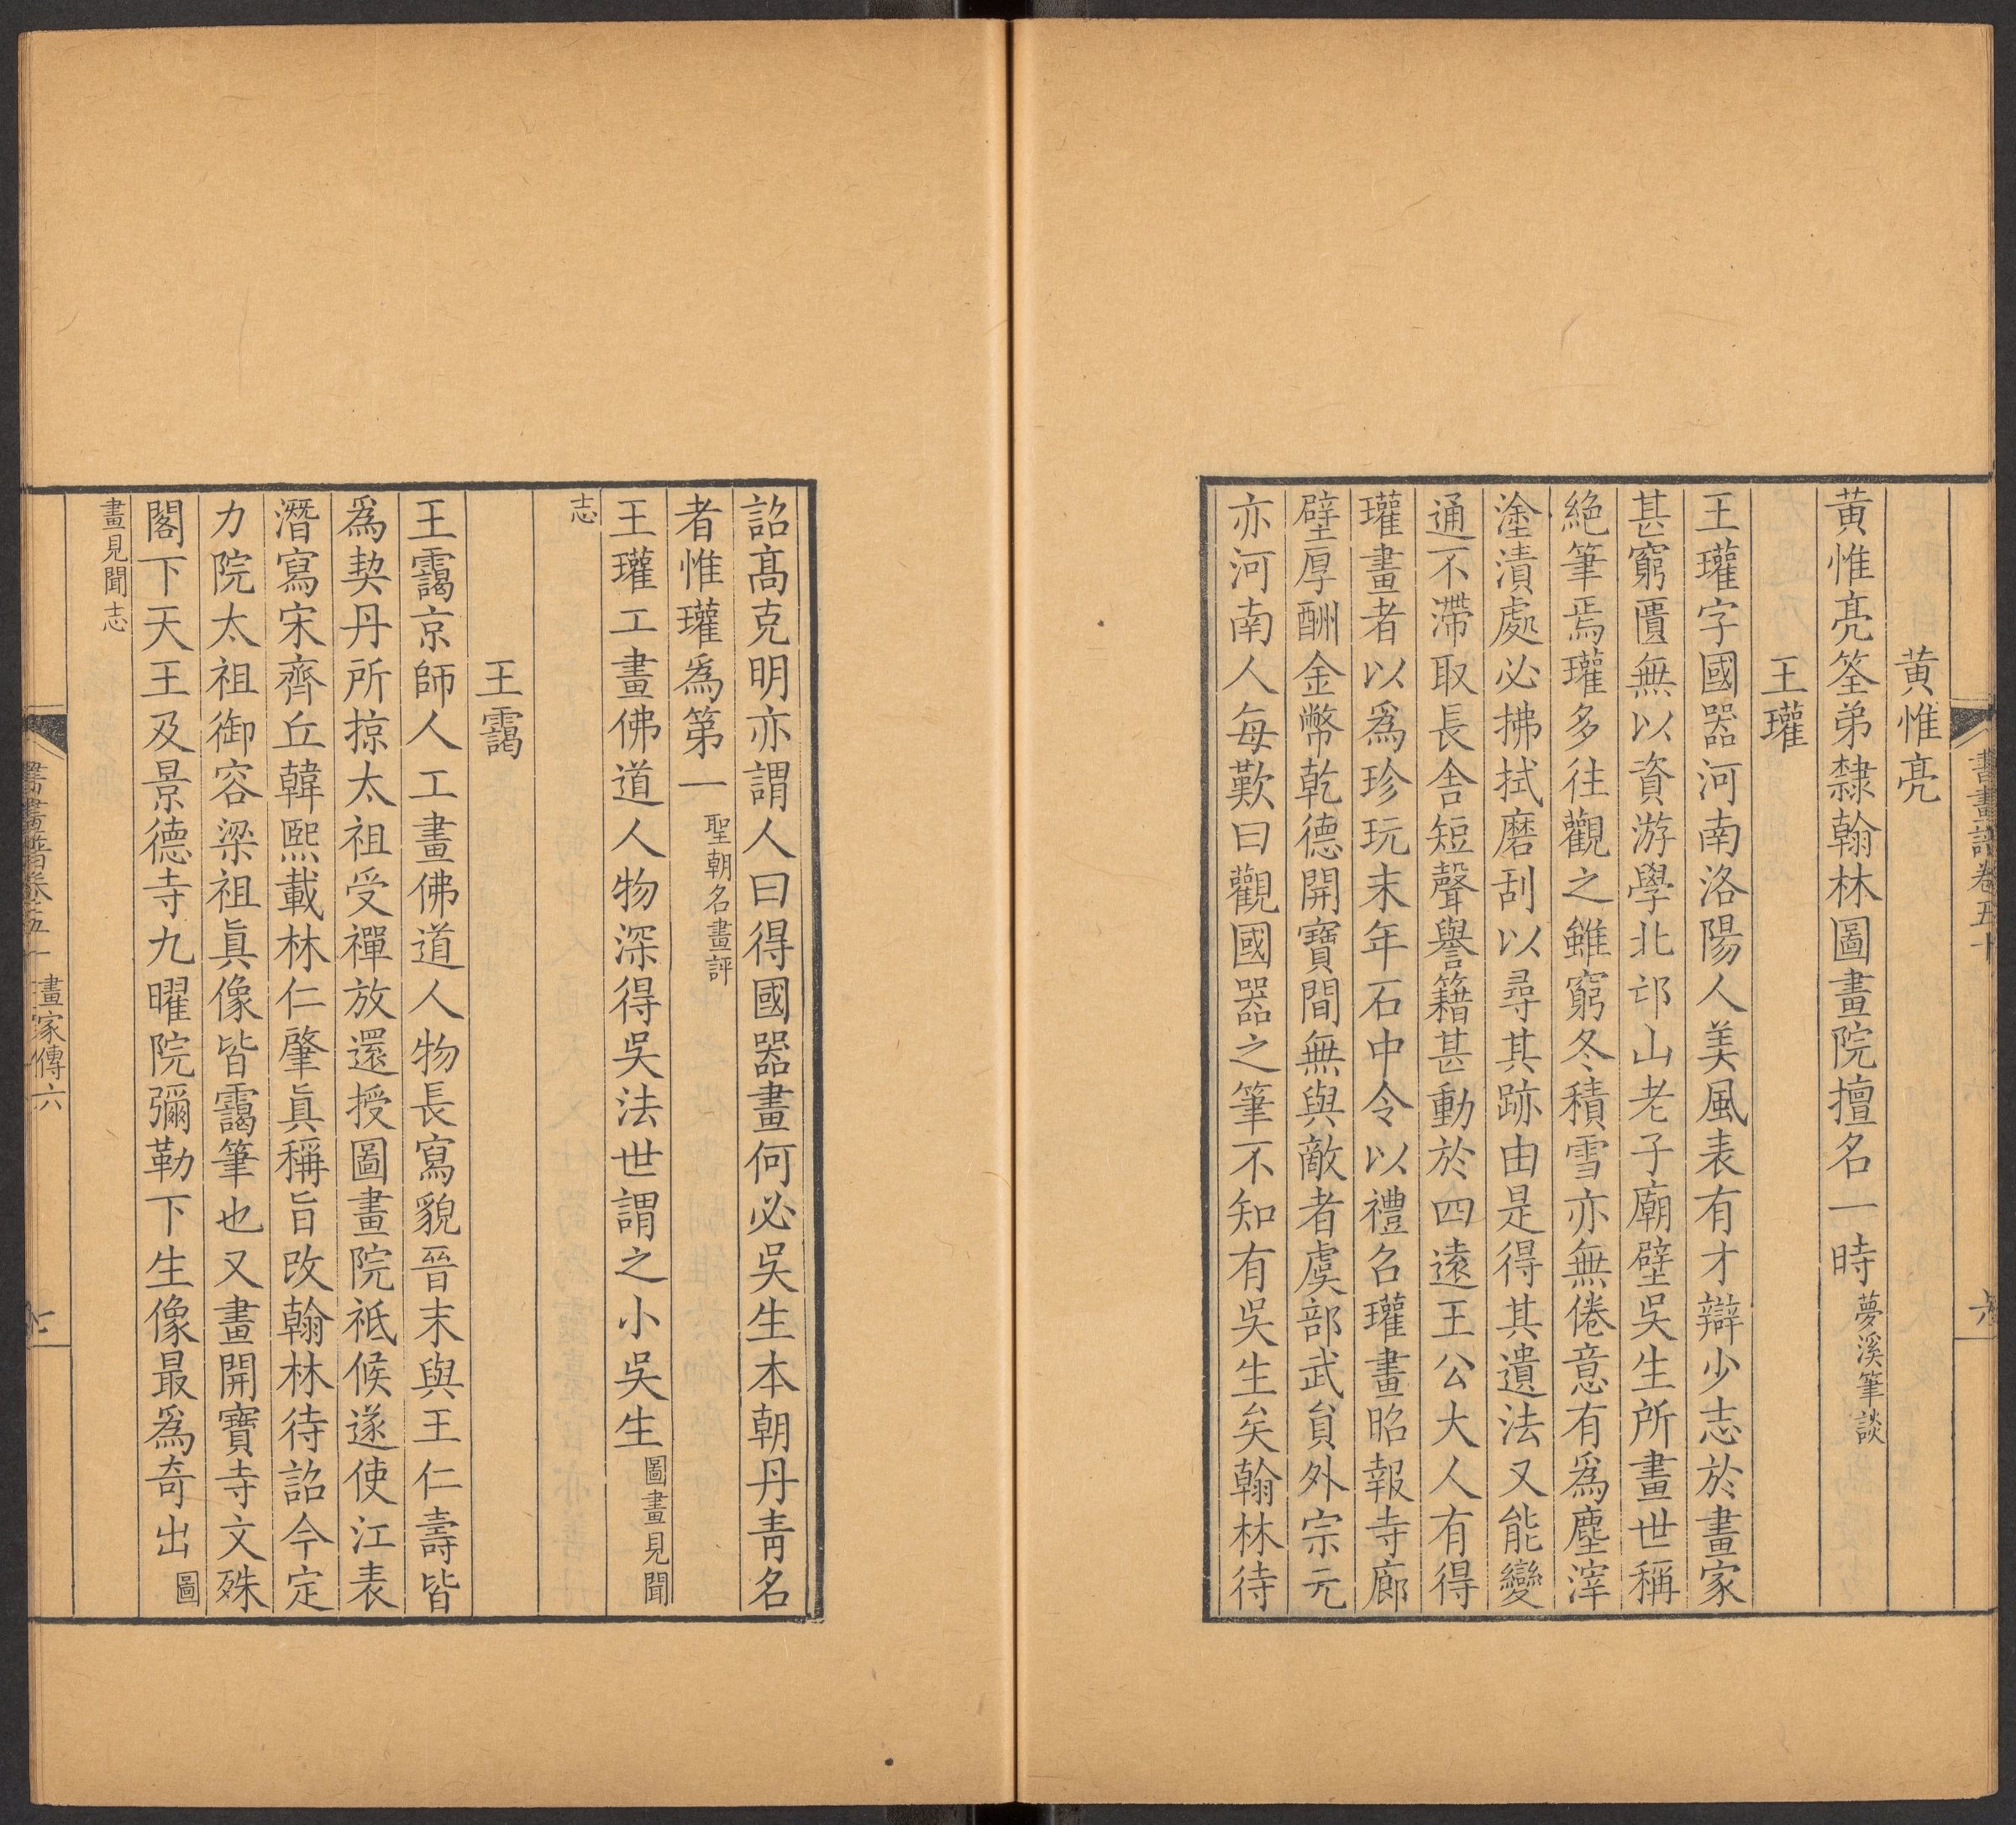 黄惟亮
黄惟亮筌弟隸翰林圖畫院擅名一時夢溪筆談
王瓘
王瓘字國器河南洛陽人美風表有才辯少志於畫家
甚窮匱無以資游學北邙山老子廟壁吳生所畫世稱
絕筆焉瓘多往觀之雖窮冬積雪亦無倦意有爲塵滓
塗漬處必拂拭磨刮以尋其跡由是得其遺法又能變
通不滯取長舍短聲譽籍甚動於四遠王公大人有得
瓘畫者以爲珍玩末年石中令以禮召瓘畫昭報寺廊
壁厚酬金幣乾德開寶間無與敵者虞部武貟外宗元
亦河南人每歎曰觀國器之筆不知有吳生矣翰林待
詔高克明亦謂人曰得國器畫何必吳生本朝丹青名
者惟瓘爲第一聖朝名畫評
王瓘工畫佛道人物深得吳法世謂之小吳生圖畫見聞
志
王靄
王靄京師人工畫佛道人物長寫貌晉末與王仁壽皆
爲契丹所掠太祖受禪放還授圖畫院祗候遂使江表
潛寫宋齊丘韓熙載林仁肇眞稱旨改翰林待詔今定
力院太祖御容梁祖眞像皆靄筆也又畫開寶寺文殊
閣下天王及景德寺九曜院彌勒下生像最爲奇出圖
畫見聞志
畫家傳六